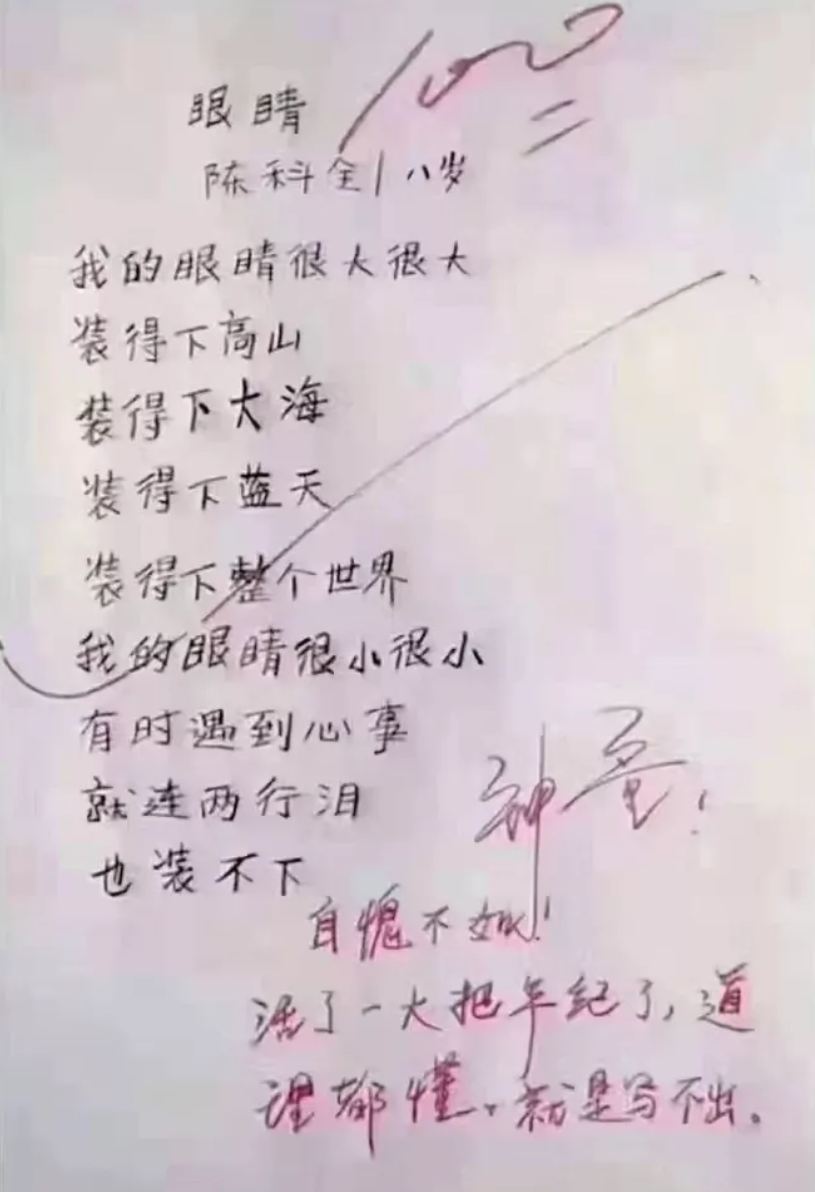 100
眼睛
陈科全/八岁
我的眼睛很大很大
装得下高山
装得下大海
装得下蓝天
装得下整个世界
我的眼睛很小很小
有时遇到心事
就连两行泪
也装不下
神童！
自愧不如！
活了一大把年纪了，道
理都懂，就是写不出。